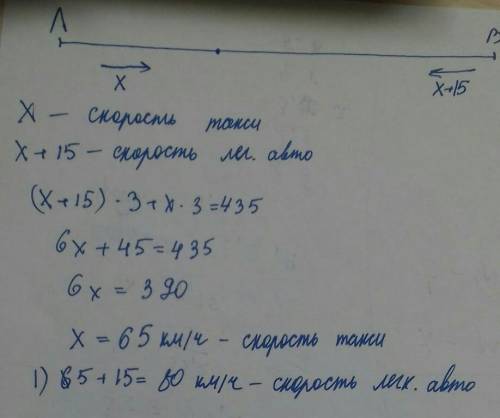 А В
х х+15
х — скорость такси
х + 15 — скорость лег. авто
(х + 15) · 3 + х · 3 = 435
6х + 45 = 435
6х = 390
х = 65 км/ч - скорость такси
1) 65 + 15 = 80 км/ч - скорость легк. авто